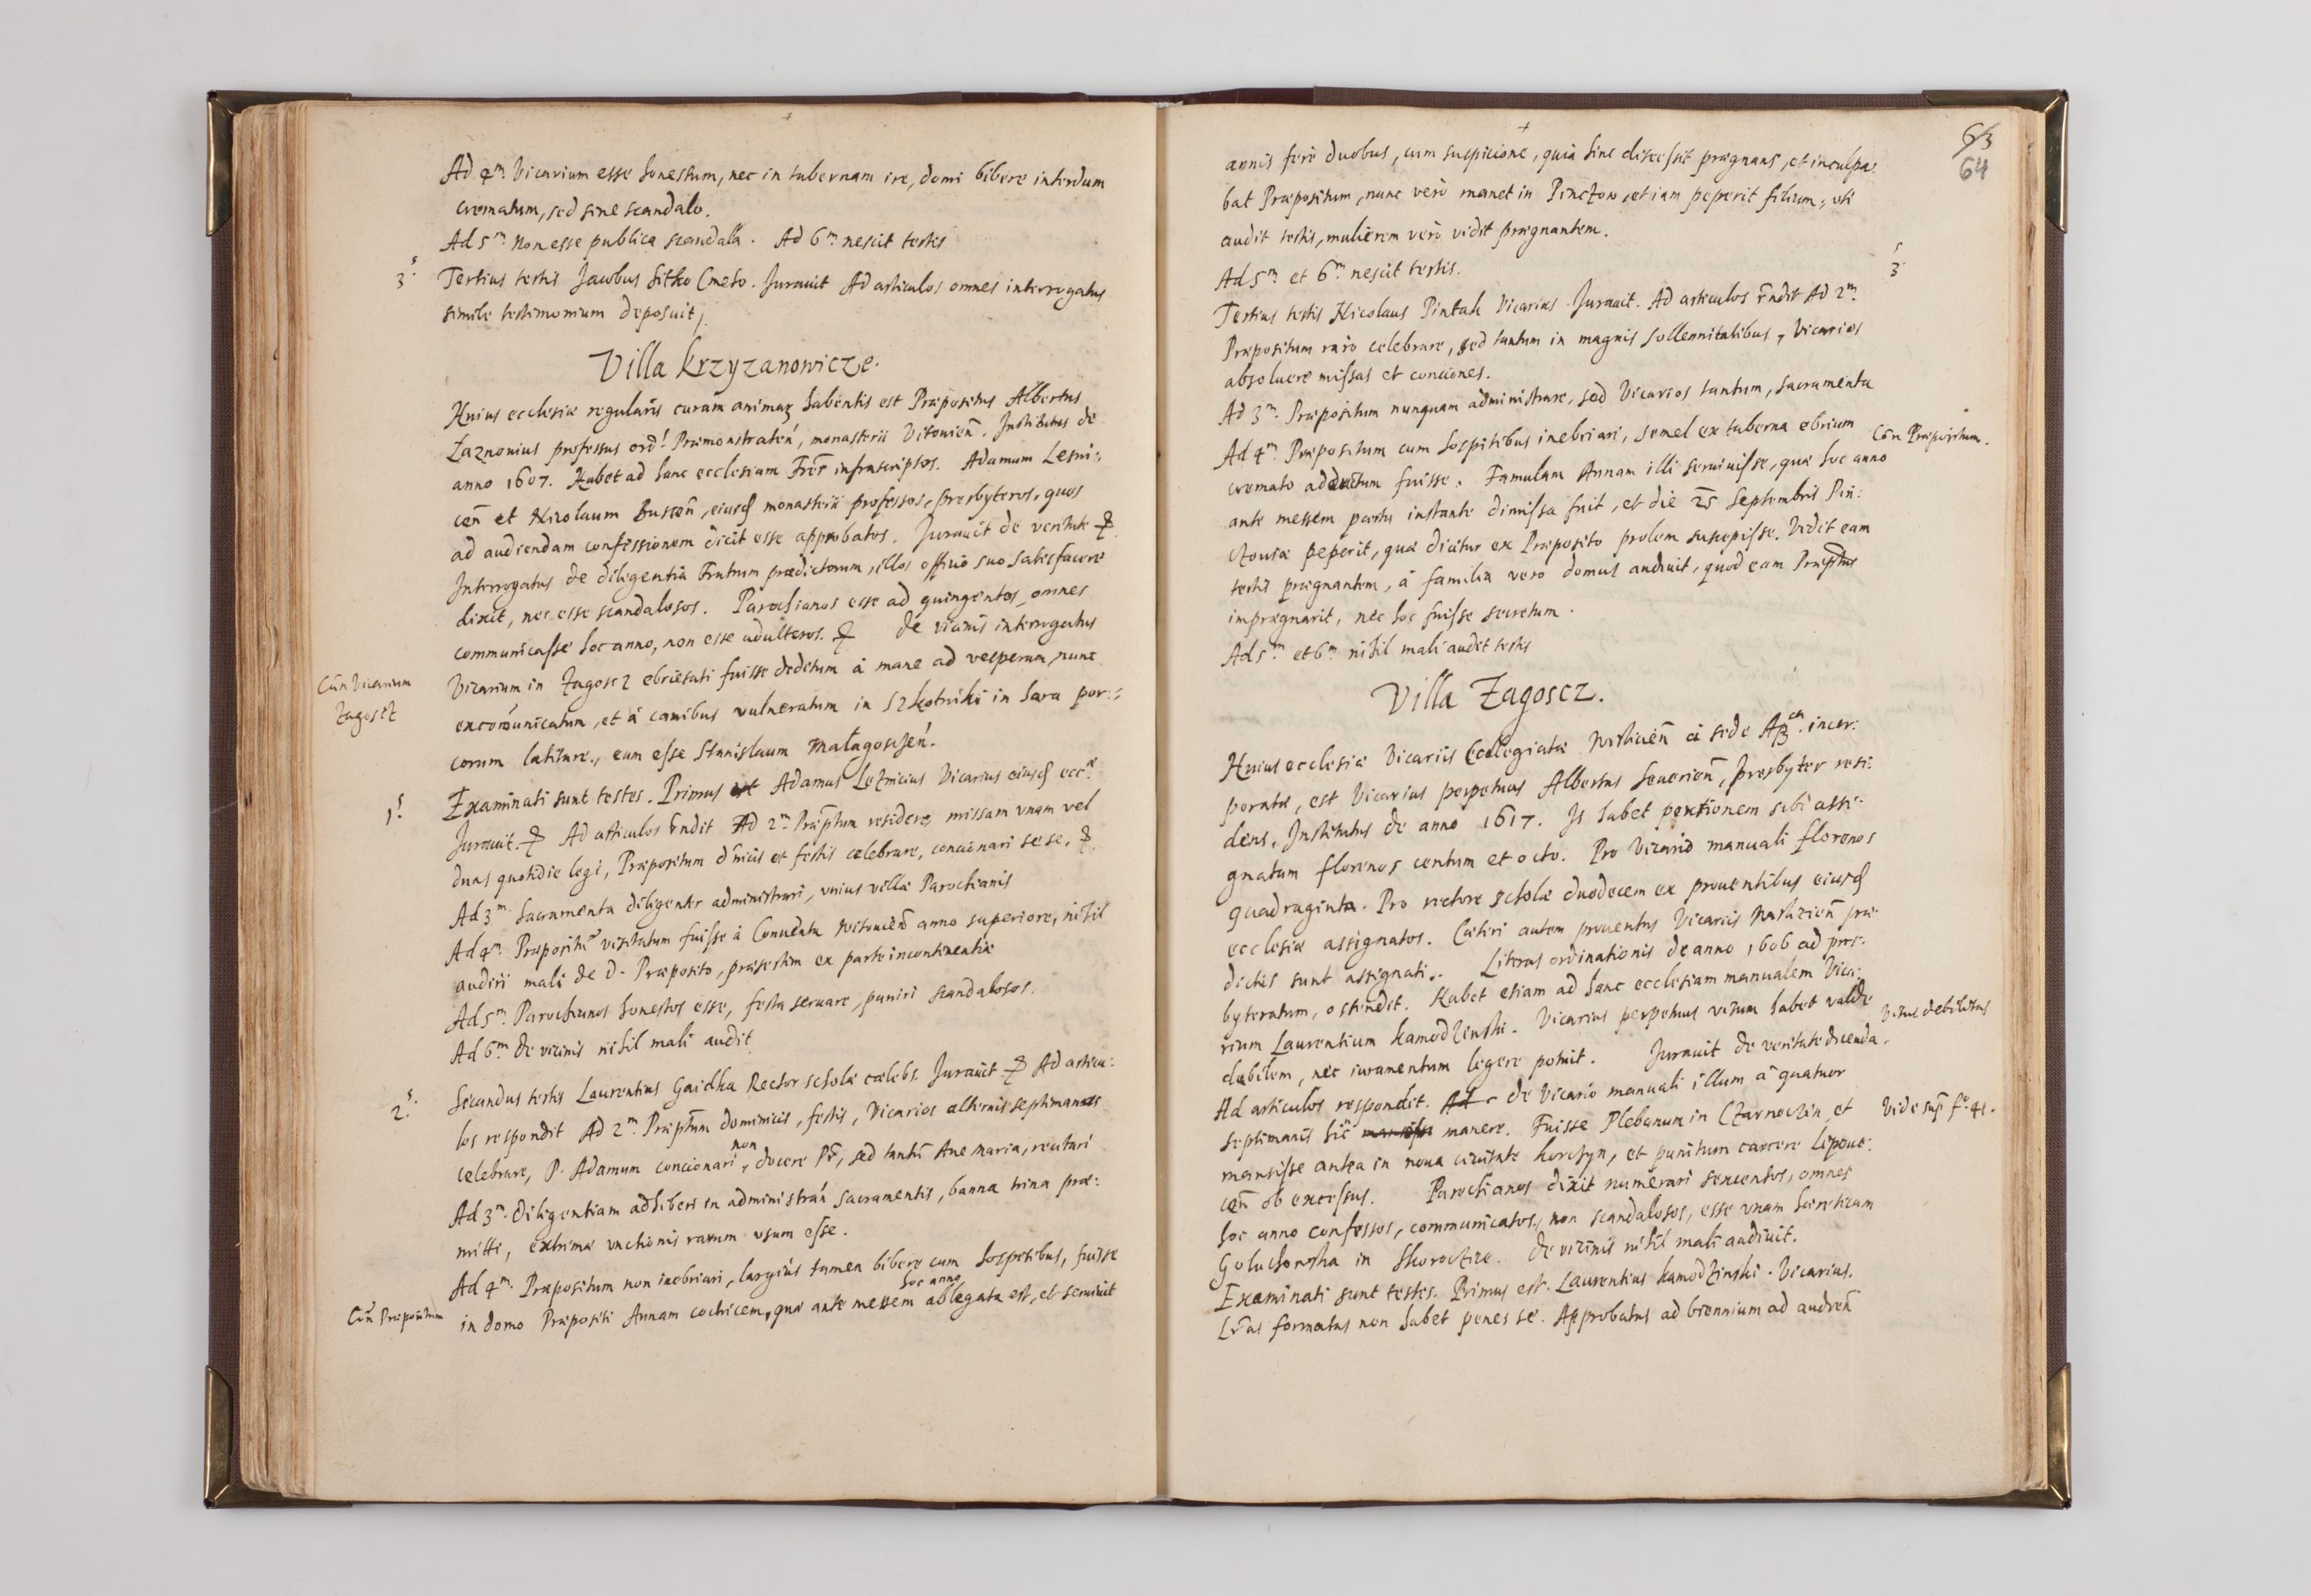 Ad 4m. Vicarium esse honestum, nec in tabernam ire, domi bibere interdum
crematum, sed sine scandalo.
Ad 5m. non esse publica scandala. Ad 6m. nescit testis
3s. Tertius testis Jacobus Sitko Cmeto. Jurauit Ad articulos omnes interrogatus
simile testimonium deposuit.
Villa Krzyzanowicze.
Huius ecclesiæ regularis curam animarum habentis est Præpositus Albertus
Zaznonius professus ord. Præmonstraten, monasterii Vitouien. Institutus de
anno 1607. Habet ad hanc ecclesiam Fres infrascriptos. Adamum Lesni:
cen et Nicolaum Buscen, eiusd monasterii professos, presbyteros, quos
ad audiendam confessionem dicit esse approbatos. Jurauit de veritate &.
Interrogatus de diligentia Fratrum prædictorum, illos officio suo satisfacere
dixit, nec esse scandalosos. Parochianos esse ad quingentos, omnes
communicasse hoc anno, non esse adulteros. & De vicinis interrogatus
Con Vicarium
Zagoscz
Vicarium in Zagoscz ebrietati fuisse deditum à mane ad vesperam, nunc
excomunicatum, et à canibus vulneratum in Szkotniki in hara por:
corum latitare, eum esse Stanislaum Małagoscen.
1s. Examinati sunt testes. Primus est Adamus Leznicius Vicarius eiusd eccæ
Jurauit. & Ad articulos rndit Ad 2m. Præptum residere, missam vnam vel
duas quotidie legi, Præpositum dnicis et festis celebrare, concionari sese, &.
Ad 3m. Sacramenta diligenter administrari, vnius villæ Parochianis
Ad 4m. Præpositū visitatum fuisse à Conuentu Witouien anno superiore, nihil
audiri mali de D. Præposito, præsertim ex parte incontinentiæ
Ad 5m. Parochianos honestos esse, festa seruare, puniri scandalosos.
Ad 6m. De vicinis nihil mali audit
2s. Secundus testis Laurentius Gaidka Rector scholæ cælebs. Jurauit & Ad articu:
los respondit Ad 2m. Præptum dominicis, festis, Vicarios alternis septimanas
celebrare, P. Adamum concionari, non docere Pr, sed tantū Aue Maria, recitari
Ad 3m. Diligentiam adhiberi in administran sacramentis, banna trina præ:
mitti, extrimæ vnctionis rarum vsum esse.
Ad 4m. Præpositum non inebriari, largius tamen bibere cum hospitibus, fuisse
Con Præpositum
in domo Præpositi Annam cochicem, quæ ante messem hoc anno ablegata est, et seruiuit
63
64
annis ferè duobus, cum suspicione, quia hinc discessit prægnans, et inculpa:
bat Præpositum, nunc verò manet in Pinczow, et iam peperit filium, vti
audit testis, mulierem verò vidit prægnantem.
Ad 5m. et 6m. nescit testis.
3s
Tertius testis Nicolaus Pintak Vicarius. Jurauit. Ad articulos rndit Ad 2m.
Præpositum rarò celebrare, sed tantum in magnis sollennitatibus, Vicarios
absoluere missas et conciones.
Ad 3m. Præpositum nunquam administrare, sed Vicarios tantum, sacramenta
Ad 4m. Præpositum cum hospitibus inebriari, semel ex taberna ebrium Con Præpositum.
cremato adductum fuisse. Famulam Annam illi seruiuisse, quæ hoc anno
ante messem partu instante dimissa fuit, et die 25 Septembris Pin:
czouiæ peperit, quæ dicitur ex Præposito prolem suscepisse. Vidit eam
testis prægnantem, à familia vero domus audiuit, quod eam Præptus
imprægnarit, nec hoc fuisse secretum.
Ad 5m. et 6m nihil mali audit testis
Villa Zagoscz.
Huius ecclesiæ Vicariis Collegiatæ Wislicien à sede Apca. incor:
poratæ, est Vicarius perpetuus Albertus Seuerien, presbyter resi:
dens. Institutus de anno 1617. Is habet portionem sibi assi:
gnatam florenos centum et octo. Pro Vicario manuali florenos
quadraginta. Pro rectore scholæ duodecem ex prouentibus eiusd
ecclesiæ assignatos. Cæteri autem prouentus Vicariis Wislicien præ:
dictis sunt assignati. Literas ordinationis de anno 1606 ad pres:
byteratum, ostendit. Habet etiam ad hanc ecclesiam manualem Vica:
rium Laurentium Kamodzinski. Vicarius perpetuus visum habet valde
Visus debilitas
debilem, nec iuramentum legere potuit. Jurauit de veritate dicenda.
Ad articulos respondit. Ad De Vicario manuali illum à quatuor
septimanis hic manere. Fuisse Plebanum in Czarnoczin et
Vide sup fo 41.
mansisse antea in noua ciuitate Korchyn, et punitum carcere Lipoue:
cen ob excessus. Parochianos dixit numerari sexcentos, omnes
hoc anno confessos, communicatos, non scandalosos, esse vnam hæreticam
Goluchowska in Skorocize. De vicinis nihil mali audiuit.
Examinati sunt testes. Primus est Laurentius Kamodzinski. Vicarius.
Lras formatas non habet penes se. Approbatus ad biennium ad audien